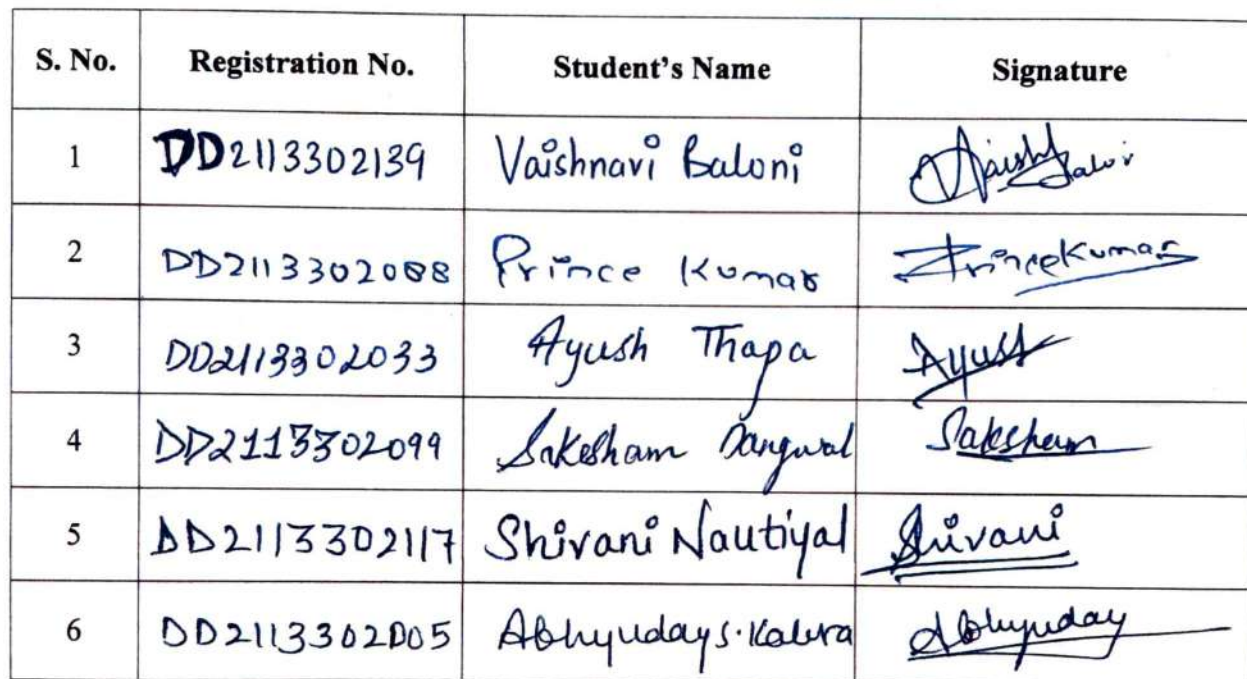 S. No. Registration No. Student's Name Signature
1 DD2113302139 Vaishnavi Baloni
2 DD2113302088 Prince Kumar PrinceKumar
3 DD2113302033 Ayush Thapa Ayush
4 DD2113302099 Sakesham Dangwal Saksham
5 DD2113302117 Shivani Nautiyal Shivani
6 DD2113302005 Abhyuday S. Kalura Abhyuday